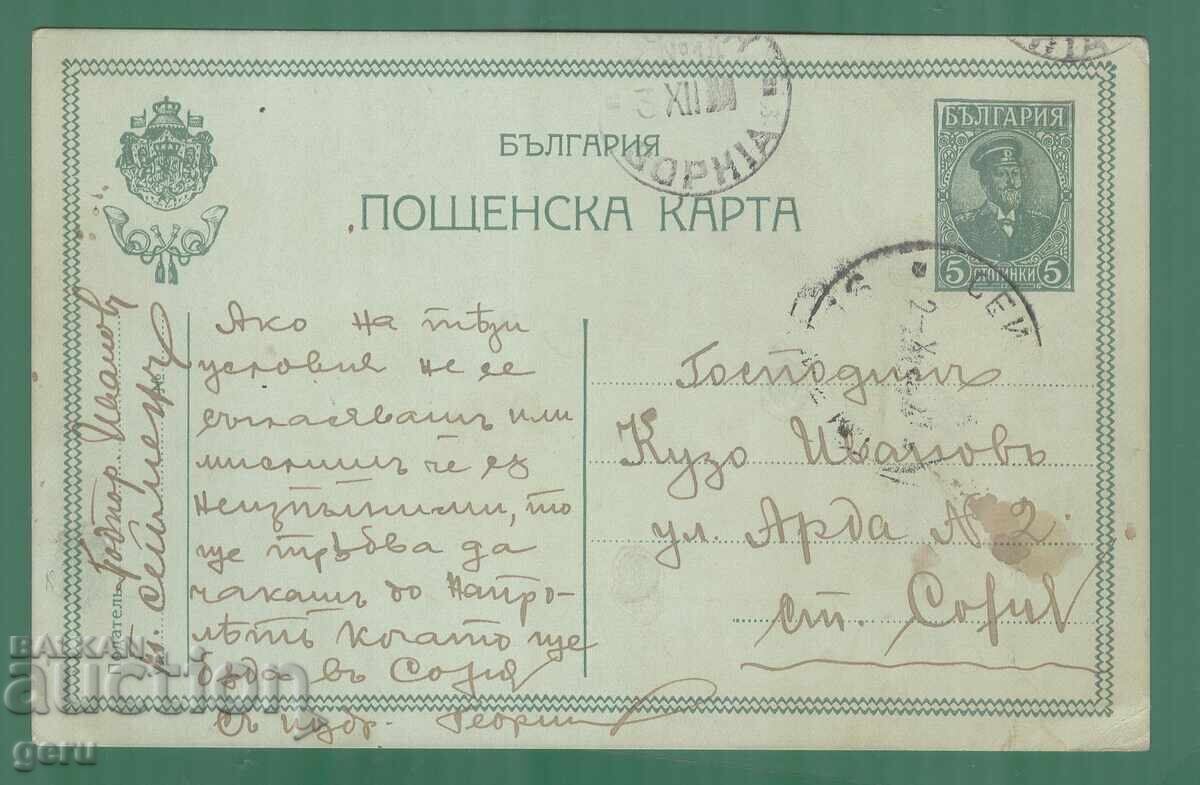 БЪЛГАРИЯ
ПОЩЕНСКА КАРТА
БЪЛГАРИЯ
5 СТОТИНКИ 5
3 XII
СОФИЯ
2-X
СЕЙ
Ако на тѣзи
условия не се
съгласявашъ или
мислишъ че сѫ
неизпълними, то
ще трѣбва да
чакашъ до Напро-
лѣть когато ще
бѫда въ София
Съ поздр. Георги
Господинъ
Кузо Ивановъ
ул. Арда № 2
ст. София
Податель
Ивановъ
BALKAN
auction
geru